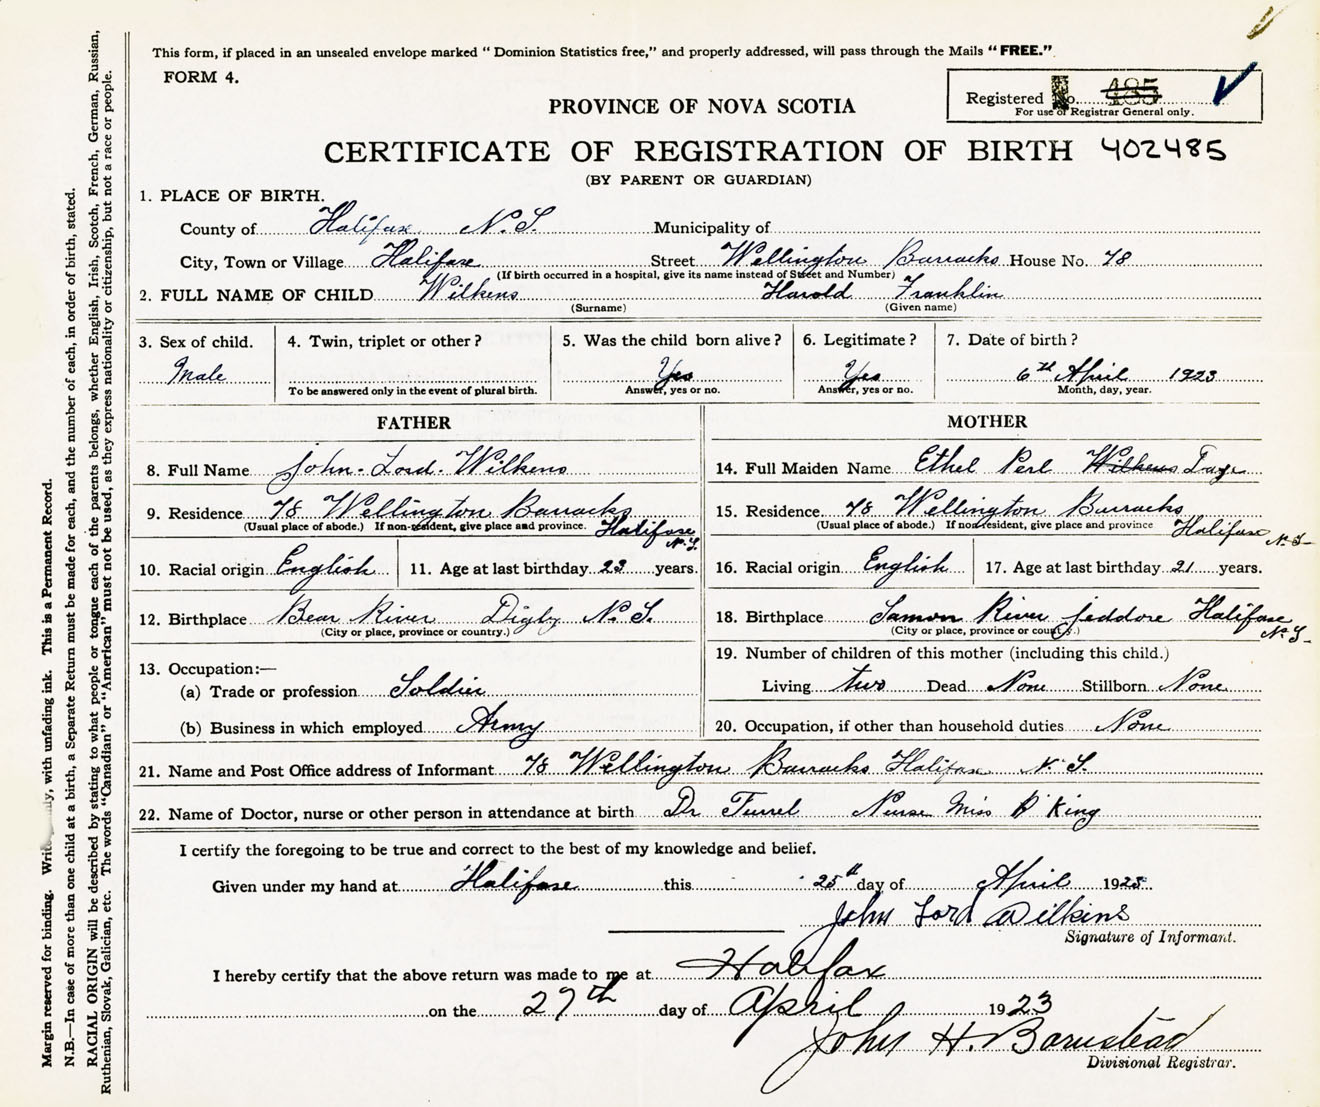 This form, if placed in an unsealed envelope marked "Dominion Statistics free," and properly addressed, will pass through the Mails "FREE."
FORM 4.
Registered No. 485
For use of Registrar General only.
PROVINCE OF NOVA SCOTIA
CERTIFICATE OF REGISTRATION OF BIRTH 402485
(BY PARENT OR GUARDIAN)
1. PLACE OF BIRTH.
County of Halifax N.S. Municipality of
City, Town or Village Halifax Street Wellington Barracks House No. 78
(If birth occurred in a hospital, give its name instead of Street and Number)
2. FULL NAME OF CHILD Wilkens Harold Franklin
(Surname) (Given name)
3. Sex of child. 4. Twin, triplet or other? 5. Was the child born alive? 6. Legitimate? 7. Date of birth?
Male Yes Yes 6th April 1923
To be answered only in the event of plural birth. Answer, yes or no. Answer, yes or no. Month, day, year.
FATHER MOTHER
8. Full Name John Lord Wilkens 14. Full Maiden Name Ethel Perl Wilkens
9. Residence 78 Wellington Barracks 15. Residence 78 Wellington Barracks
(Usual place of abode.) If non-resident, give place and province. Halifax N.S. (Usual place of abode.) If non-resident, give place and province Halifax N.S.
10. Racial origin English 11. Age at last birthday 23 years. 16. Racial origin English 17. Age at last birthday 21 years.
12. Birthplace Bear River Digby N.S. 18. Birthplace Samon River Jeddore Halifax N.S.
(City or place, province or country.) (City or place, province or country.)
13. Occupation:— 19. Number of children of this mother (including this child.)
(a) Trade or profession Soldier Living two Dead None Stillborn None
(b) Business in which employed Army 20. Occupation, if other than household duties None
21. Name and Post Office address of Informant 78 Wellington Barracks Halifax N.S.
22. Name of Doctor, nurse or other person in attendance at birth Dr Nurse Miss King
I certify the foregoing to be true and correct to the best of my knowledge and belief.
Given under my hand at Halifax this 25th day of April 1923
John Lord Wilkins
Signature of Informant.
I hereby certify that the above return was made to me at Halifax
on the 27th day of April 1923
John H. Barnstead
Divisional Registrar.
Margin reserved for binding. with unfading ink. This is a Permanent Record.
N.B.—In case of more than one child at a birth, a Separate Return must be made for each, and the number of each, in order of birth, stated.
RACIAL ORIGIN will be described by stating to what people or tongue each of the parents belongs, whether English, Irish, Scotch, French, German, Russian,
Ruthenian, Slovak, Galician, etc. The words "Canadian" or "American" must not be used, as they express nationality or citizenship, but not a race or people.